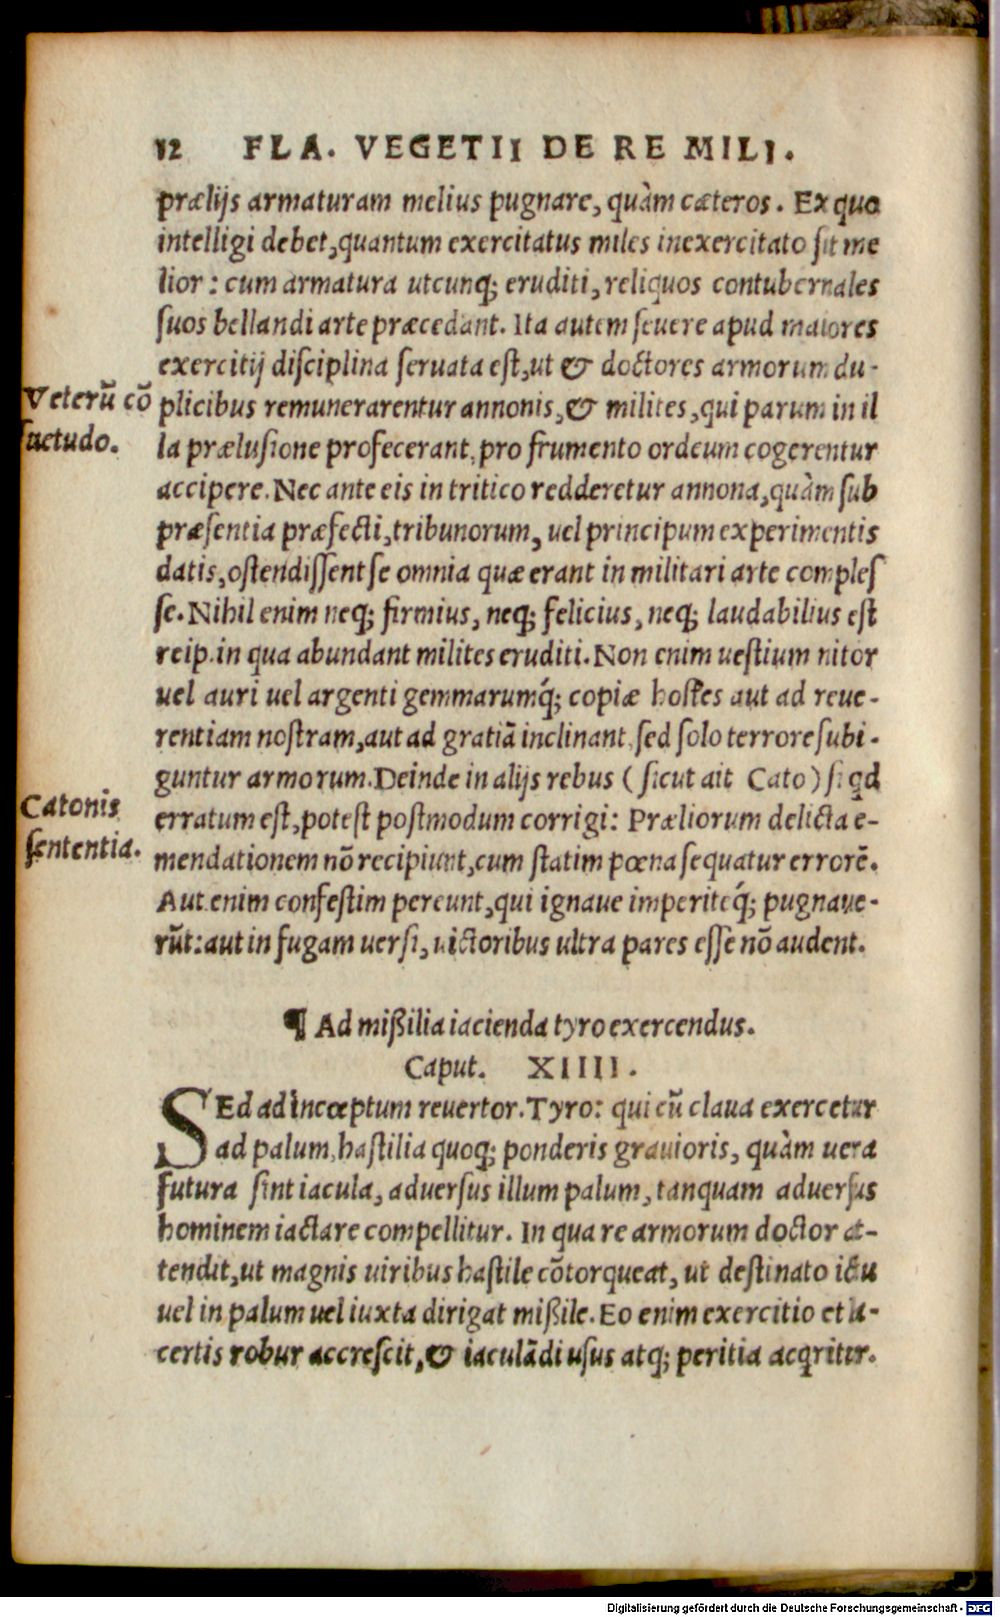 12 FLA. VEGETII DE RE MILI.
prælijs armaturam melius pugnare, quàm cæteros. Ex quo
intelligi debet, quantum exercitatus miles inexercitato sit me
lior: cum armatura utcunq; eruditi, reliquos contubernales
suos bellandi arte præcedant. Ita autem seuere apud maiores
exercitij disciplina seruata est, ut & doctores armorum du-
Veterū cō
suetudo.
plicibus remunerarentur annonis, & milites, qui parum in il
la prælusione profecerant, pro frumento ordeum cogerentur
accipere. Nec ante eis in tritico redderetur annona, quàm sub
præsentia præfecti, tribunorum, uel principum experimentis
datis, ostendissent se omnia quæ erant in militari arte comples
se. Nihil enim neq; firmius, neq; felicius, neq; laudabilius est
reip. in qua abundant milites eruditi. Non enim uestium nitor
uel auri uel argenti gemmarumq́; copiæ hostes aut ad reue-
rentiam nostram, aut ad gratiā inclinant, sed solo terrore subi-
guntur armorum. Deinde in alijs rebus (sicut ait Cato) si qd
Catonis
sententia.
erratum est, potest postmodum corrigi: Præliorum delicta e-
mendationem nō recipiunt, cum statim pœna sequatur errorē.
Aut enim confestim pereunt, qui ignaue imperiteq́; pugnaue-
rūt: aut in fugam uersi, uictoribus ultra pares esse nō audent.
¶ Ad mißilia iacienda tyro exercendus.
Caput. XIIII.
SEd ad incœptum reuertor. Tyro: qui cū claua exercetur
ad palum, hastilia quoq; ponderis grauioris, quàm uera
futura sint iacula, aduersus illum palum, tanquam aduersus
hominem iactare compellitur. In qua re armorum doctor at-
tendit, ut magnis uiribus hastile cōtorqueat, ut destinato ictu
uel in palum uel iuxta dirigat mißile. Eo enim exercitio et la-
certis robur accrescit, & iaculādi usus atq; peritia acqritur.
Digitalisierung gefördert durch die Deutsche Forschungsgemeinschaft - DFG